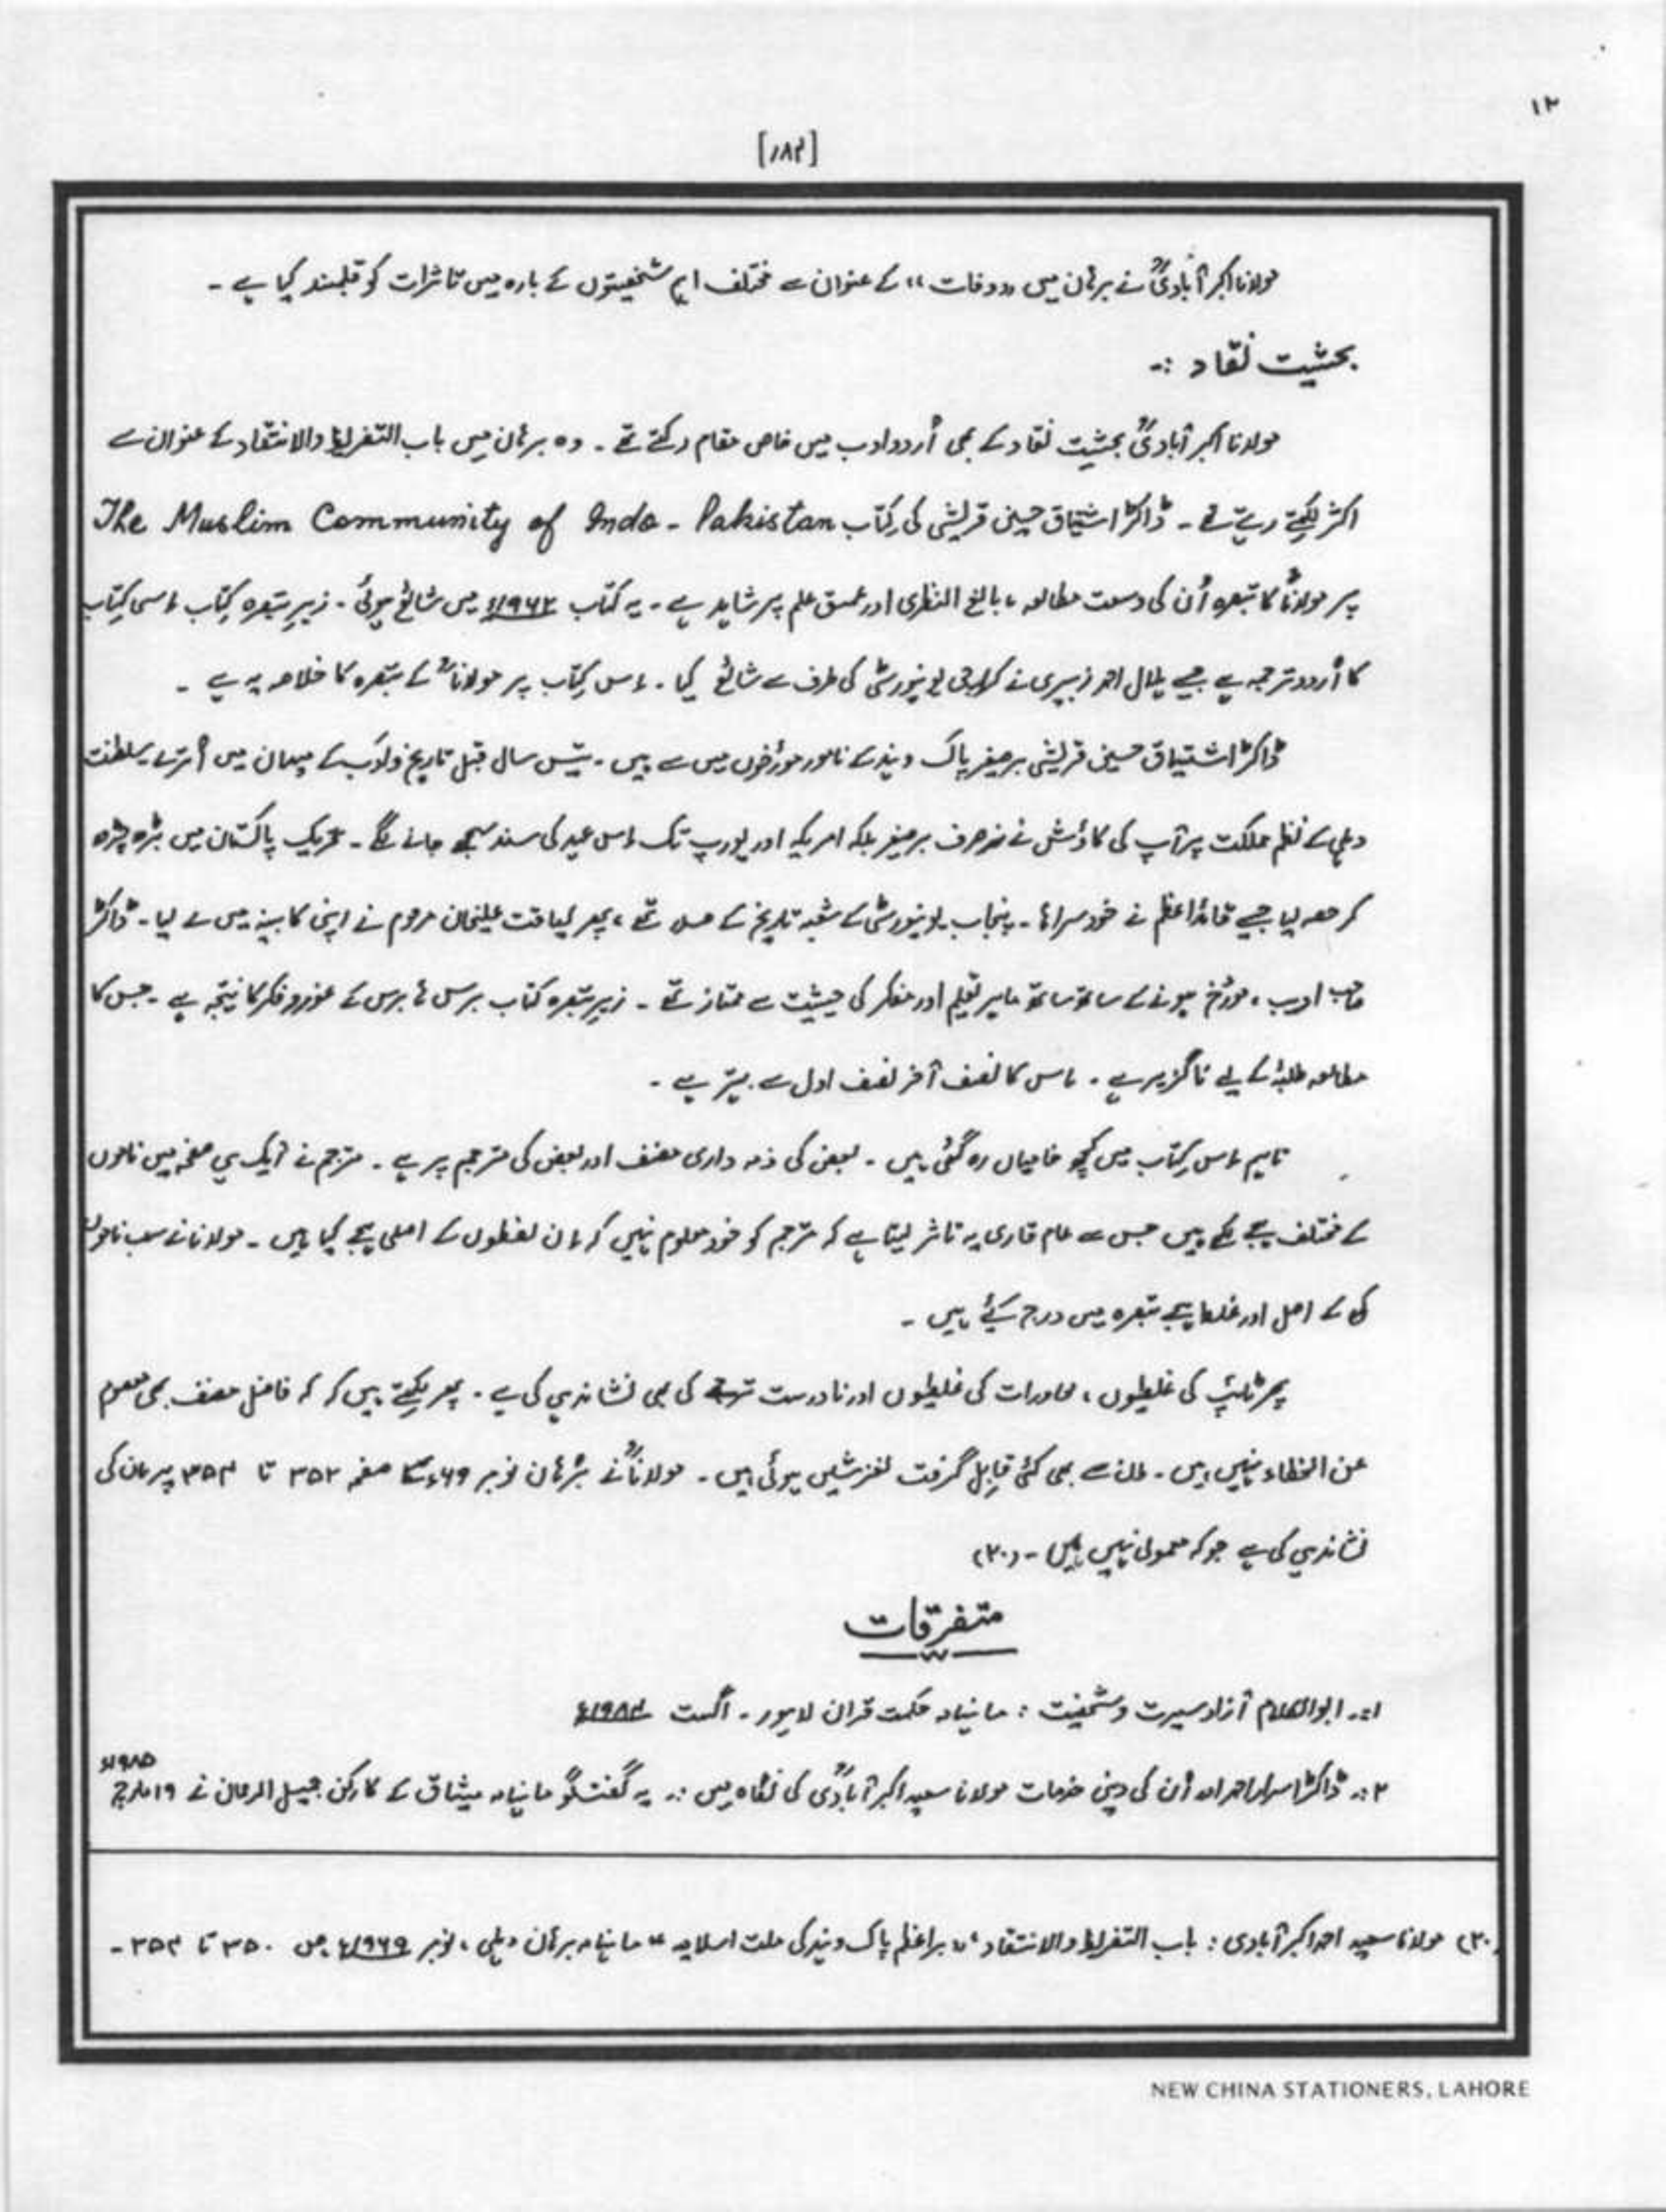 ۱۲
[۱۸۴]
مولانا اکبر آبادیؒ نے برہان میں ,,وفات،، کے عنوان سے مختلف اہم شخصیتوں کے بارہ میں تاثرات کو قلمبند کیا ہے ۔
بحثیت نقاد :۔
مولانا اکبر آبادیؒ بحثیت نقاد کے بھی اُردو ادب میں خاص مقام رکھتے تھے ۔ وہ برہان میں باب التقریظ والانتقاد کے عنوان سے
اکثر لکھتے رہتے تھے ۔ ڈاکٹر اشتیاق حسین قریشی کی کتاب The Muslim Community of Indo - Pakistan
پر مولاناؒ کا تبصرہ اُن کی وسعت مطالعہ ، بالغ النظری اور عمیق علم پر شاہد ہے ۔ یہ کتاب ۱۹۶۲ء میں شائع ہوئی ۔ زیرِ تبصرہ کتاب اسی کتاب
کا اُردو ترجمہ ہے جسے ہلال احمد زبیری نے کراچی یونیورسٹی کی طرف سے شائع کیا ۔ اس کتاب پر مولاناؒ کے تبصرہ کا خلاصہ یہ ہے ۔
ڈاکٹر اشتیاق حسین قریشی برصغیر پاک و ہند کے نامور مورٔخوں میں سے ہیں ۔ تیس سال قبل تاریخ و ادب کے میدان میں اُترے سلطنت
دہلی کے نظم مملکت پر آپ کی کاؤش نے نہ صرف برصغیر بلکہ امریکہ اور یورپ تک اس عہد کی سند سمجھے جانے لگے ۔ تحریک پاکستان میں بڑھ چڑھ
کر حصہ لیا جسے قائد اعظم نے خود سراہا ۔ پنجاب یونیورسٹی کے شعبہ تاریخ کے صدر تھے ، پھر لیاقت علیخان مرحوم نے اپنی کابینہ میں لے لیا ۔ ڈاکٹر
صاحب ادیب ، مورٔخ ہونے کے ساتھ ساتھ ماہر تعلیم اور مفکر کی حیثیت سے ممتاز تھے ۔ زیرِ تبصرہ کتاب برس ہا برس کے غور و فکر کا نتیجہ ہے ۔ جس کا
مطالعہ طلبہٰ کے لیے ناگزیر ہے ۔ اس کا نصف آخر نصف اول سے بہتر ہے ۔
تاہم اس کتاب میں کچھ خامیاں رہ گئی ہیں ۔ بعض کی ذمہ داری مصنف اور بعض کی مترجم پر ہے ۔ مترجم نے ایک ہی صفحہ میں ناموں
کے مختلف ہجے لکھے ہیں جس سے عام قاری یہ تاثر لیتا ہے کہ مترجم کو خود معلوم نہیں کہ ان لفظوں کے اصلی ہجے کیا ہیں ۔ مولانا نے سب ناموں
کی کے اصل اور غلط ہجے تبصرہ میں درج کیٔے ہیں ۔
پھر ٹائپ کی غلطیوں ، محاورات کی غلطیوں اور نادرست ترجمے کی بھی نشاندہی کی ہے ۔ پھر لکھتے ہیں کہ کہ فاضل مصنف بھی معصوم
عن الخطاء نہیں ہیں ۔ ان سے بھی کئی قابِل گرفت لغزشیں ہوئی ہیں ۔ مولاناؒ نے برہان نومبر ۶۹ء کے صفحہ ۳۵۲ تا ۳۵۴ پر ان کی
نشاندہی کی ہے جو کہ معمولی نہیں ہیں ۔ (۳۰)
متفرقات
۱:۔ ابوالکلام آزاد سیرت و شخصیت : ماہنامہ حکمت قرآن لاہور ۔ اگست ۱۹۸۴ء
۲:۔ ڈاکٹر اسرار احمد اور اُن کی دینی خدمات مولانا سعید اکبر آبادیؒ کی نگاہ میں :۔ یہ گفتگو ماہنامہ میثاق کے کارکن جمیل الرحمان نے ۱۹ مارچ ۱۹۸۵ء
(۳۰) مولانا سعید احمد اکبر آبادی : باب التقریظ والانتقاد ,, براعظم پاک و ہند کی ملت اسلامیہ ،، ماہنامہ برہان دہلی ، نومبر ۱۹۶۹ء ص ۳۵۰ تا ۳۵۴ ۔
NEW CHINA STATIONERS, LAHORE